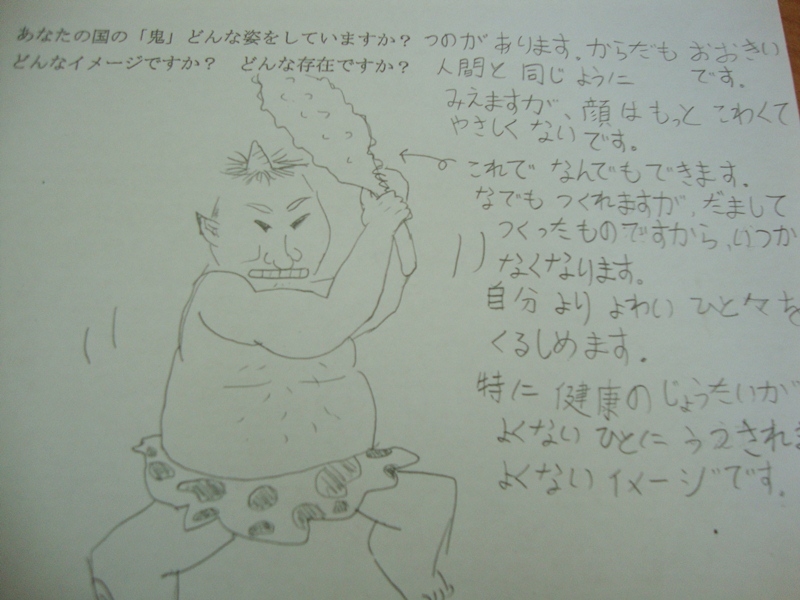 あなたの国の「鬼」どんな姿をしていますか？
どんなイメージですか？　どんな存在ですか？
つのがあります。からだもおおきい
です。
人間と同じように
みえますが、顔はもっとこわくて
やさしくないです。
これでなんでもできます。
なでもつくれますが、だまして
つくったものですから、いつか
なくなります。
自分よりよわいひと々を
くるしめます。
特に健康のじょうたいが
よくないひとにうえされま
よくないイメージです。